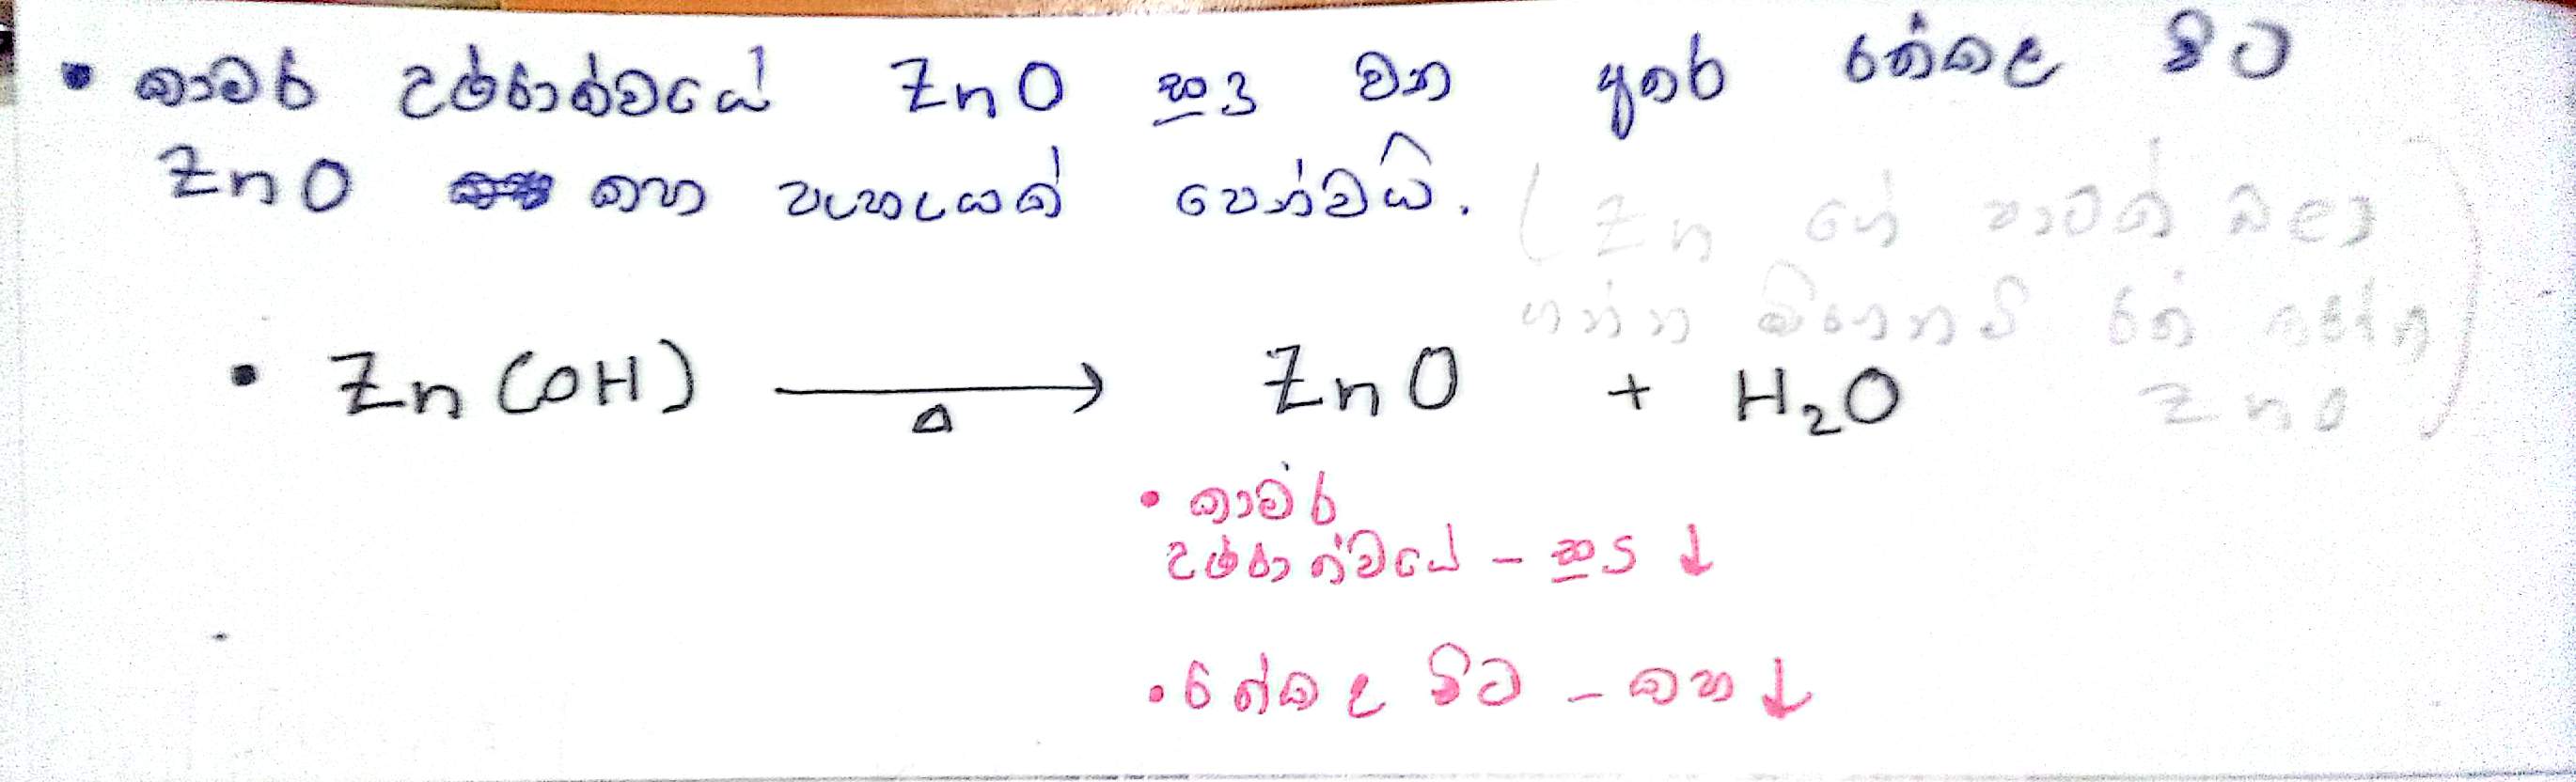 • කාමර උෂ්ණත්වයේ ZnO සුදු වන අතර රත්කළ විට
ZnO කහ පැහැයක් පෙන්වයි.
(Zn ගේ පාටක් බලා
ගන්න විතරයි රත් කරන්න
ZnO)
• Zn(OH) ⟶ ZnO + H₂O
Δ
• කාමර
උෂ්ණත්වයේ - සුදු ↓
• රත්කළ විට - කහ ↓